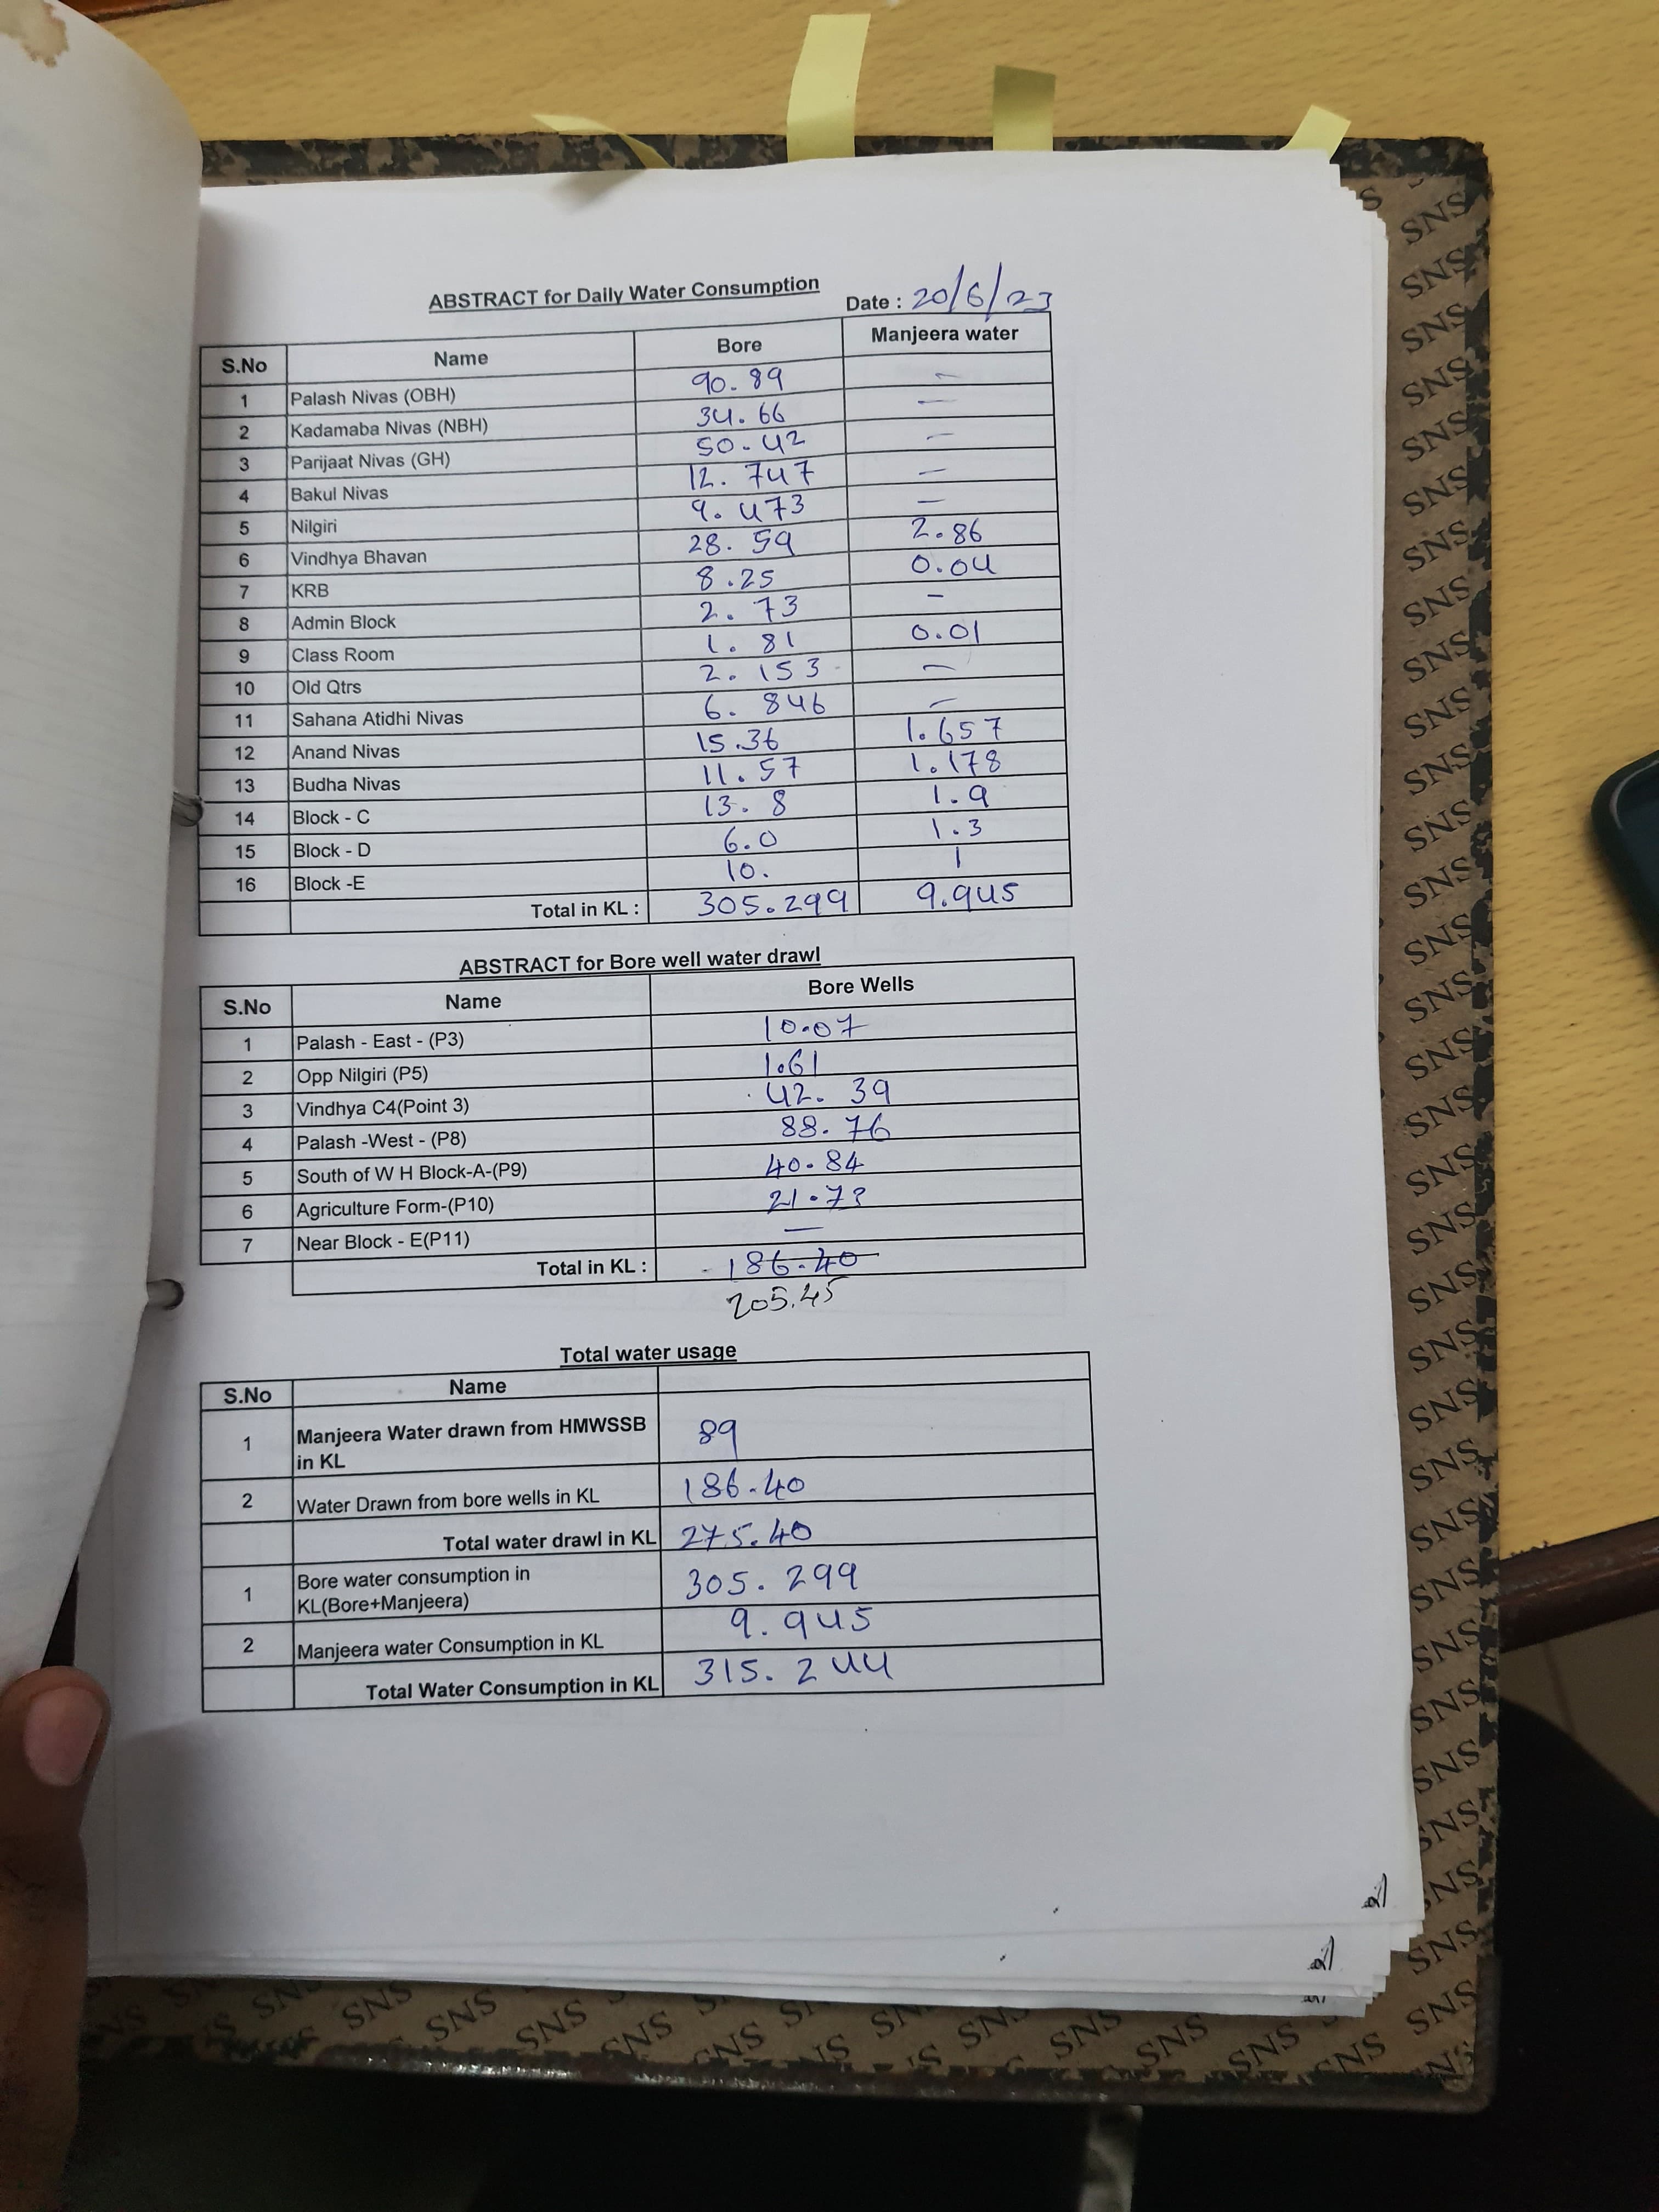 ABSTRACT for Daily Water Consumption
Date : 20/6/23
S.No Name Bore Manjeera water
1 Palash Nivas (OBH) 90.89 –
2 Kadamaba Nivas (NBH) 34.66 –
3 Parijaat Nivas (GH) 50.42 –
4 Bakul Nivas 12.747 –
5 Nilgiri 9.473 –
6 Vindhya Bhavan 28.59 2.86
7 KRB 8.25 0.04
8 Admin Block 2.73 –
9 Class Room 1.81 0.01
10 Old Qtrs 2.153 –
11 Sahana Atidhi Nivas 6.846 –
12 Anand Nivas 15.36 1.657
13 Budha Nivas 11.57 1.178
14 Block - C 13.8 1.9
15 Block - D 6.0 1.3
16 Block -E 10. 1
Total in KL : 305.299 9.945
ABSTRACT for Bore well water drawl
S.No Name Bore Wells
1 Palash - East - (P3) 10.07
2 Opp Nilgiri (P5) 1.61
3 Vindhya C4(Point 3) 42.39
4 Palash -West - (P8) 88.76
5 South of W H Block-A-(P9) 40.84
6 Agriculture Form-(P10) 21.73
7 Near Block - E(P11) —
Total in KL : 186.40
205.45
Total water usage
S.No Name
1 Manjeera Water drawn from HMWSSB
in KL 89
2 Water Drawn from bore wells in KL 186.40
Total water drawl in KL 275.40
1 Bore water consumption in
KL(Bore+Manjeera) 305.299
2 Manjeera water Consumption in KL 9.945
Total Water Consumption in KL 315.244
SNS